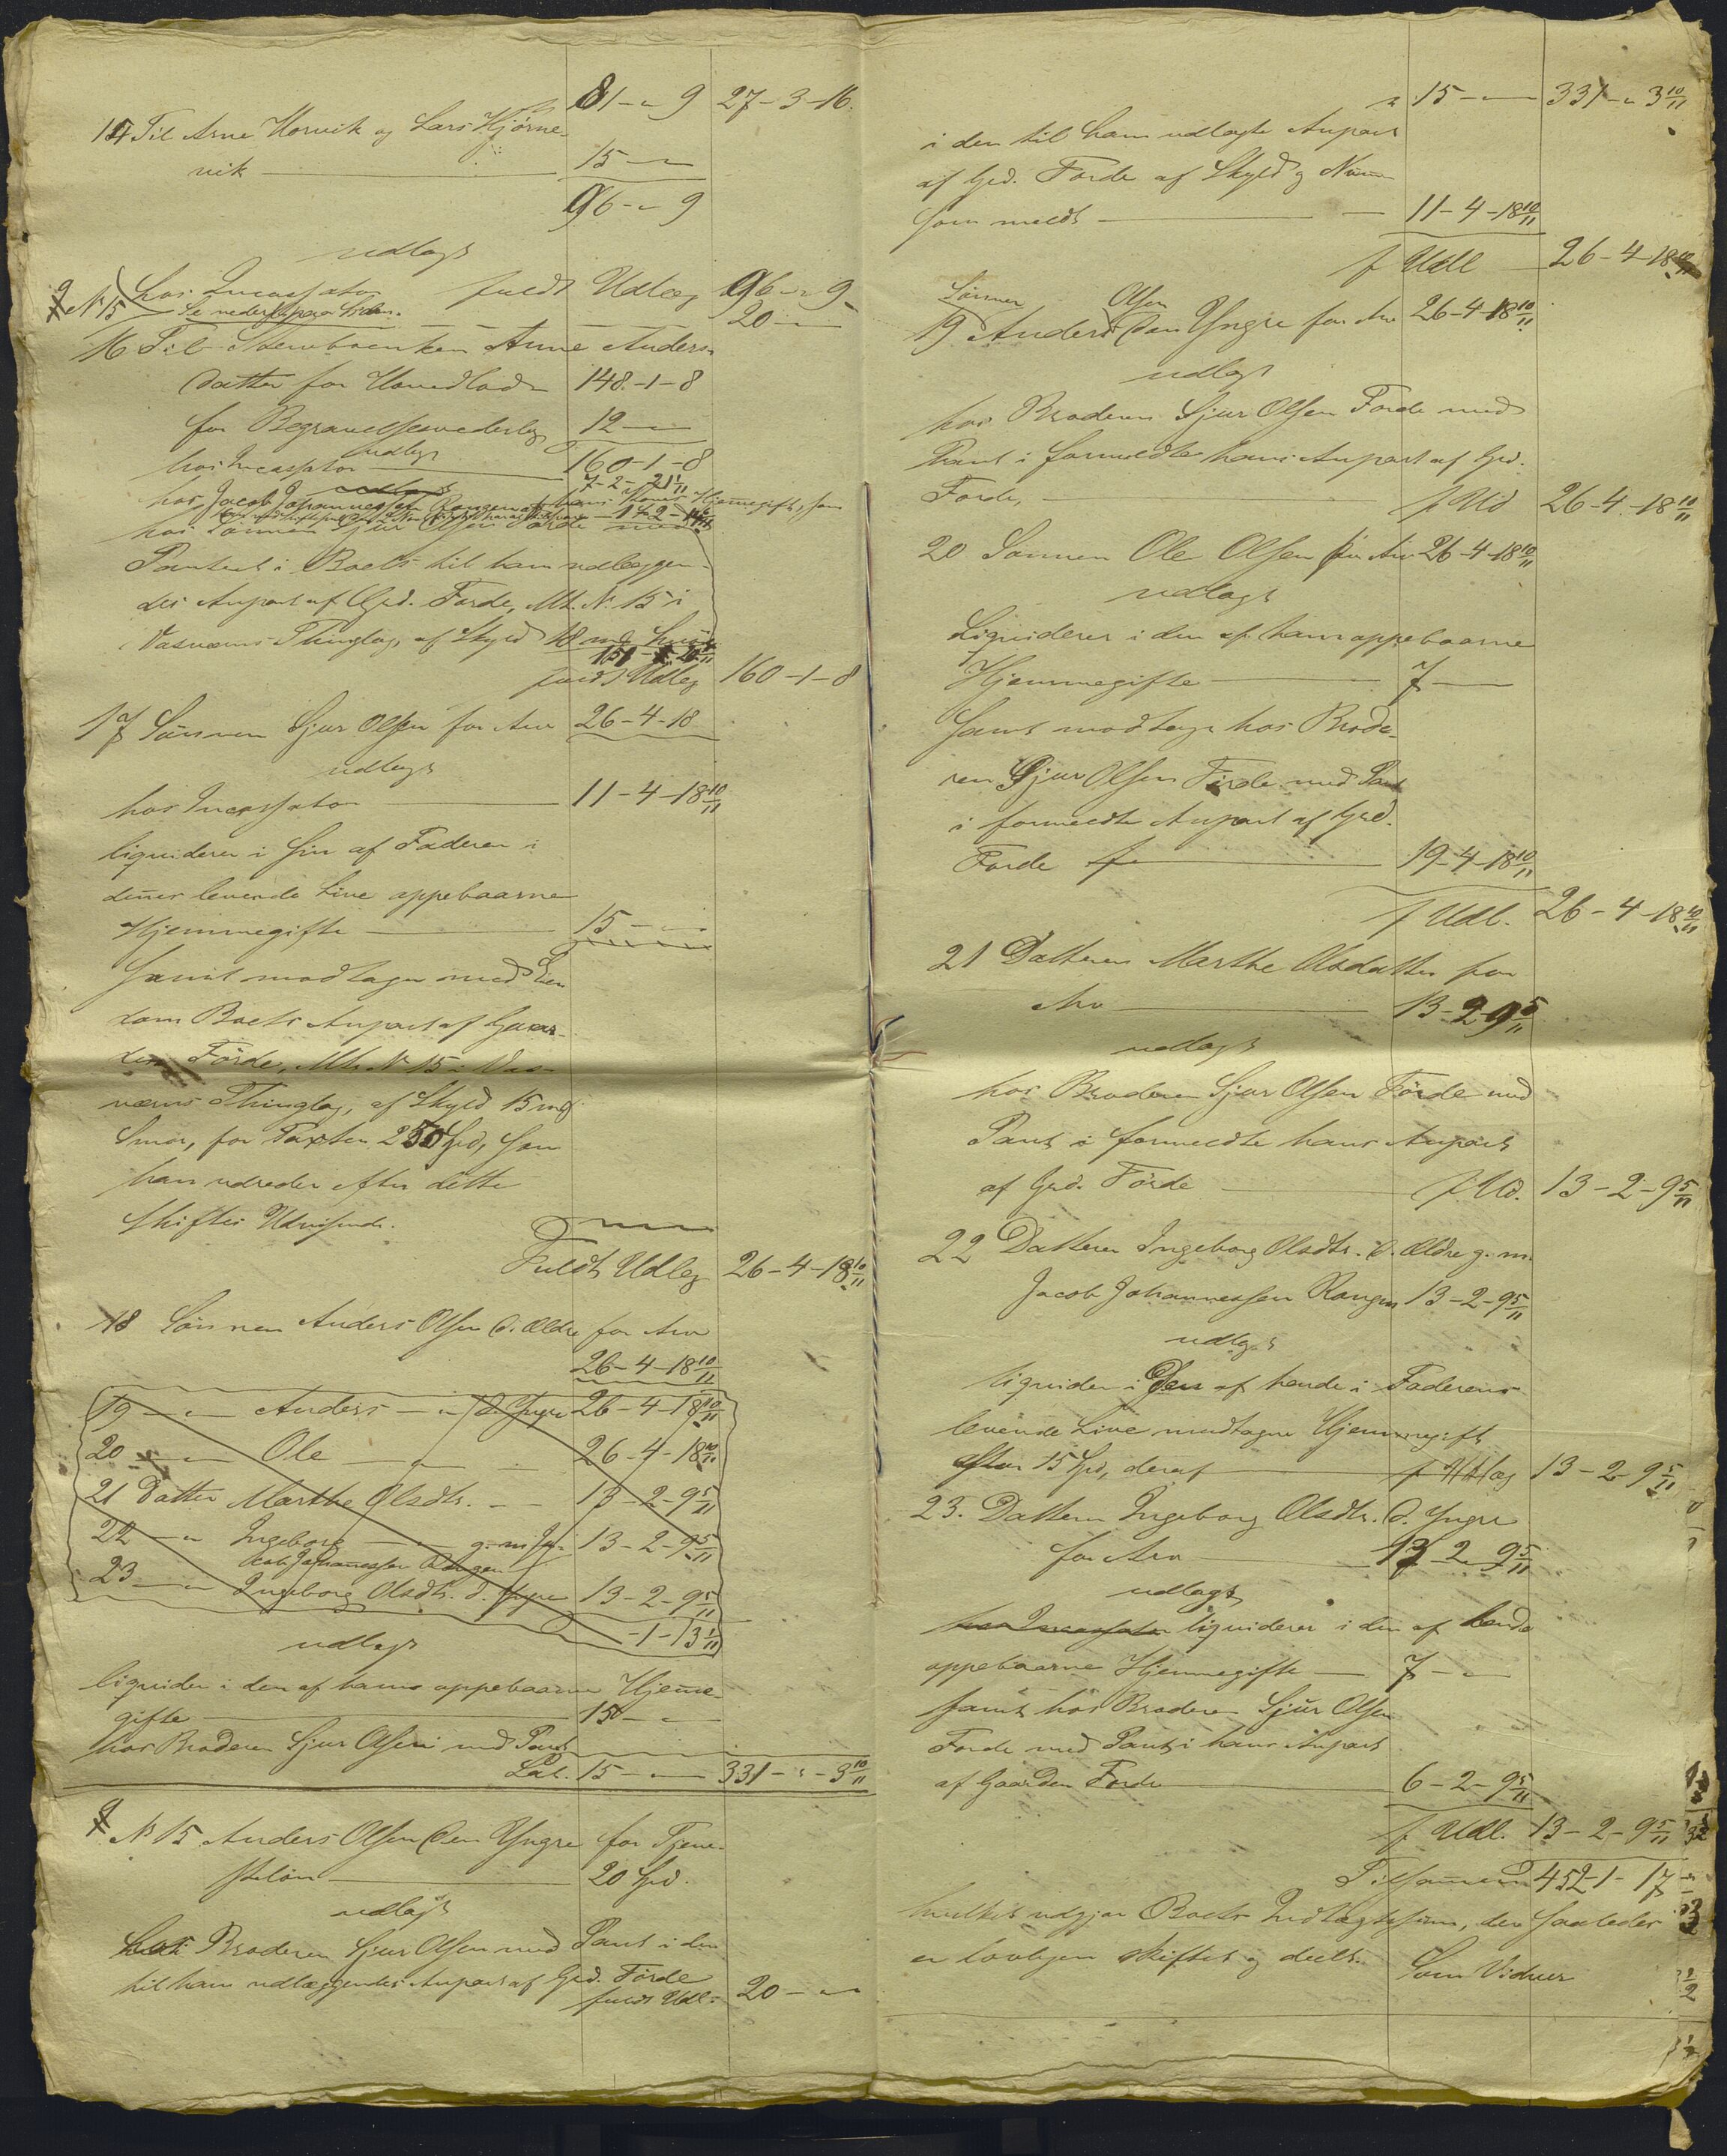 81 - " 9 27 - 3 - 16.
14 Til Arne Horvik og Lars Hjørne-
vik 15 - "
96 - " 9
udlagt
hos Incassator fuldt Udlæg 96 - " 9
No 15 Se nederst paa Siden. 20 - "
16 Til Stervboenken Anne Anders
datter for Hovedlod 148 - 1 - 8
for Begravelsesvederlag 12 - "
udlagt 160 - 1 - 8
hos Incassator 7 - 2 - 21 1/11
hos Jacob Johannessen Rangen af hans Kones Hjemmegift, som
hos Sønnen Sjur Olsen Førde med
Panteret i Boets til ham udlæggen-
des Anpart af Grd. Førde, Mt. No 15 i
Vasværns Thinglag, af Skyld
fuldt Udlæg 160 - 1 - 8
17 Sønnen Sjur Olsen for Arv 26 - 4 - 18
udlagt
hos Incassator 11 - 4 - 18 10/11
liquiderer i sin af Faderen i
dennes levende Live oppebaarne
Hjemmegifte 15 - "
Samt modtager med Eien
dom Boets Anpart af Gaar-
den Førde, Mt. No 15 i Vas-
værns Thinglag, af Skyld 15 mrk
Smør, for Taxten 250 Spd, som
han udreder efter dette
Skiftes Udvisende.
Fuldt Udlæg 26 - 4 - 18 10/11
18 Sønnen Anders Olsen d. Ældre for Arv
26 - 4 - 18 10/11
19 - " Anders - " d. Yngre 26 - 4 - 18 10/11
20 - " Ole - " 26 - 4 - 18 10/11
21 Datter Marthe Olsdtr. - 13 - 2 - 9 5/11
22 - " Ingeborg - " g. m. Ja- 13 - 2 - 9 5/11
cob Johannessen Rangen
23 - " Ingeborg Olsdtr. d. Yngre 13 - 2 - 9 5/11
- 1 - 13 1/11
udlagt
liquiderer i den af hans oppebaarne Hjemme-
gifte 15 - "
hos Broderen Sjur Olsen med Pant
Lat. 15 - " 331 - " - 3 10/11
No 15 Anders Olsen den Yngre for Tjene-
steløn 20 Spd.
udlagt
hos Broderen Sjur Olsen med Pant i den
til ham udlæggendes Anpart af Grd. Førde
fuldt Udl. 20 - "
15 - " 331 - " 3 10/11
i den til ham udlagte Anpart
af Grd. Førde af Skyld og Numer
som meldt 11 - 4 - 18 10/11
f Udl 26 - 4 - 18 10/11
Sønnen Olsen
19 Anders den Yngre for Arv 26 - 4 - 18 10/11
udlagt
hos Broderen Sjur Olsen Førde med
Pant i formeldte hans Anpart af Grd.
Førde, f Ud 26 - 4 - 18 10/11
20 Sønnen Ole Olsen for Arv 26 - 4 - 18 10/11
udlagt
Liquiderer i den af ham oppebaarne
Hjemmegifte 7 -
Samt modtager hos Brode-
ren Sjur Olsen Førde med Pant
i formeldte Anpart af Grd.
Førde 19 - 4 - 18 10/11
f Udl. 26 - 4 - 18 10/11
21 Datteren Marthe Olsdatter for
Arv 13 - 2 - 9 5/11
udlagt
hos Broderen Sjur Olsen Førde med
Pant i formeldte hans Anpart
af Grd. Førde f Ud. 13 - 2 - 9 5/11
22 Datteren Ingeborg Olsdtr. d. Ældre g. m.
Jacob Johannessen Rangen 13 - 2 - 9 5/11
udlagt
liquiderer i den af hende i Faderens
levende Live modtagne Hjemmegift
15 Spd, deraf f Udlæg 13 - 2 - 9 5/11
23. Datteren Ingeborg Olsdtr. d. Yngre
for Arv 13 - 2 - 9 5/11
udlagt
hos Incassator liquiderer i den af hende
oppebaarne Hjemmegifte 7 - "
samt hos Broderen Sjur Olsen
Førde med Pant i hans Anpart
af Gaarden Førde 6 - 2 - 9 5/11
f Udl. 13 - 2 - 9 5/11
Tilsammen 452 - 1 - 17
hvilket udgjør Boets Indtægtssum, der saaledes
er lovligen skiftet og deelt. Som Vidner